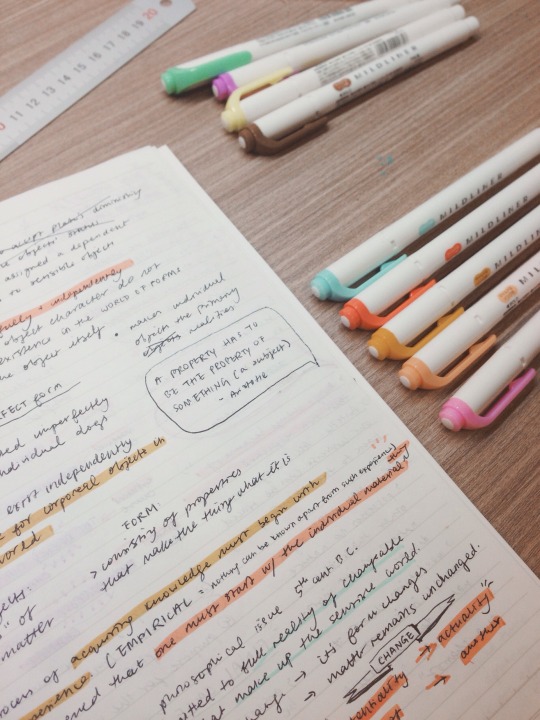 11 12 13 14 15 16 17 18 19 20
MILDLINER
MILDLINER
MILDLINER
MILDLINER
MILDLINER
accept Plato's diminishing
objects' status
assigned a dependent
to sensible objects
& independently
object character do not
existence in the WORLD OF FORMS
the object itself
• makes individual
objects the primary
realities
A PROPERTY HAS TO
BE THE PROPERTY OF
SOMETHING (a subject)
- Aristotle
FORM
imperfectly
individual dogs
EXIST independently
for corporeal objects in
world
FORM:
> consisting of properties
that make the thing what it is
of
matter
process of acquiring knowledge must begin with
sense (EMPIRICAL = nothing can be known apart from such experience)
that one must start w/ the individual material
thing
philosophical issue 5th cent. B.C.
the reality of changeable
that make up the sensible world.
change → its form changes
matter remains unchanged.
CHANGE
→ actuality"
→ another